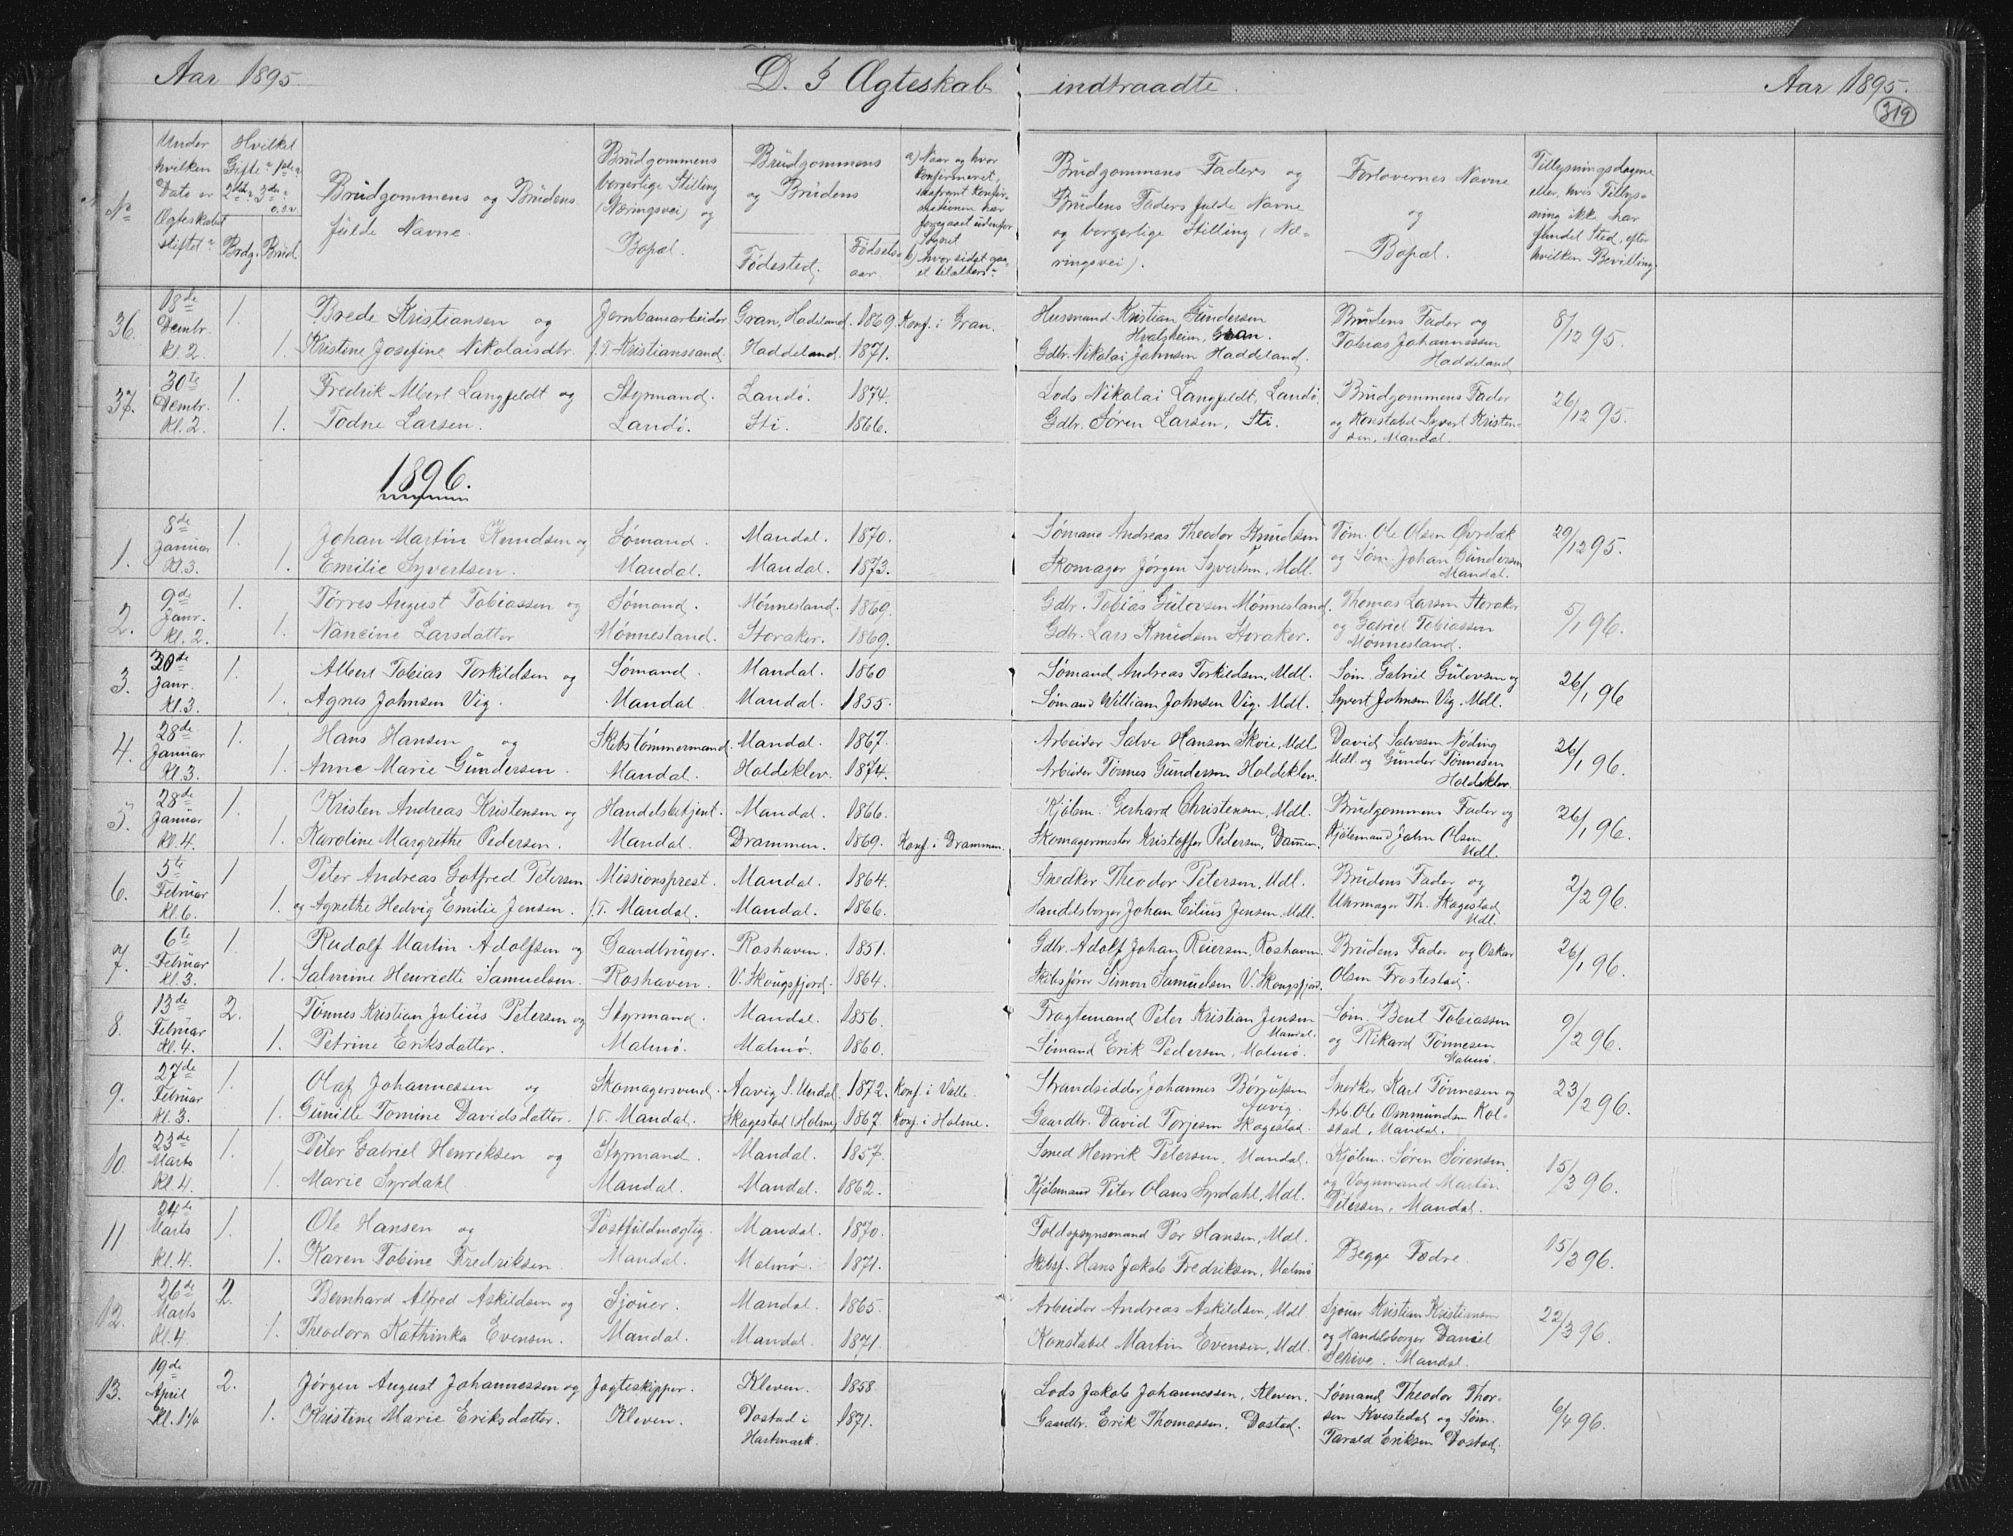 Aar 1895. D. 3 Ægteskab indtraadte. Aar 1895.
319
No
Under hvilken Dato er Ægteskabet stiftet
Hvilket Gifte
Brdg. Brud.
Brudgommens og Brudens fulde Navne.
Brudgommens borgerlige Stilling (Næringsvei) og Bopæl.
Brudgommens og Brudens
Fødested. Fødselsaar.
a) Naar og hvor konfirmeret,
Brudgommens Faders og Brudens Faders fulde Navne og borgerlige Stilling (Næringsvei).
Forlovernes Navne og Bopæl.
Tillysningsdagene eller, hvis Tillysning ikke har fundet Sted, efter hvilken Bevilling.
36. 18de Dembr. Kl. 2. 1. Brede Kristiansen og Jernbanearbeider Gran, Hadeland. 1869. Konf. i Gran. Husmand Kristian Gundersen Hvalsheim, Gran. Brudens Fader og 8/12 95.
1. Kristine Josefine Nikolaisdtr. f.T. Kristianssand. Haddeland. 1871. Gdbr. Nikolai Johnsen Haddeland. Tobias Johannessen Haddeland
37. 30te Dembr. Kl. 2. 1. Fredrik Albert Langfeldt og Styrmand. Landø. 1874. Lods Nikolai Langfeldt, Landø. Brudgommens Fader 26/12 95.
1. Todne Larsen. Landø. Sti. 1866. Gdbr. Søren Larsen, Sti. og Konstabel Syvert Kristensen, Mandal.
1896.
1. 8de Januar Kl. 3. 1. Johan Martin Knudsen og Sømand. Mandal. 1870. Sømand Andreas Theodor Knudsen Tøm. Ole Olsen Øvrebæk 29/12 95.
1. Emilie Syvertsen. Mandal. Mandal. 1873. Skomager Jørgen Syvertsen, Mdl. og Søm. Johan Gundersen Mandal.
2. 9de Janr. Kl. 2. 1. Tørres August Tobiassen og Sømand. Mønnesland. 1869. Gdbr. Tobias Gulovsen Mønnesland. Thomas Larsen Storaker 5/1 96.
1. Nancine Larsdatter Mønnesland. Storaker. 1869. Gdbr. Lars Knudsen Storaker. og Gabriel Tobiassen Mønnesland.
3. 30de Janr. Kl. 3. 1. Albert Tobias Torkildsen og Sømand. Mandal. 1860 Sømand Andreas Torkildsen, Mdl. Søm. Gabriel Gulovsen og 26/1 96
1. Agnes Johnsen Vig. Mandal. Mandal. 1855. Sømand William Johnsen Vig. Mdl. Syvert Johnsen Vig, Mdl.
4. 28de Januar Kl. 3. 1. Hans Hansen og Skibstømmermand. Mandal. 1867. Arbeider Salve Hansen Skoie, Mdl. David Salvesen Noding 26/1 96.
1. Anne Marie Gundersen. Mandal. Holdeklev. 1874. Arbeider Tønnes Gundersen Holdeklev. Mdl. og Gunder Tønnesen Holdeklev.
5. 28de Januar Kl. 4. 1. Kristen Andreas Kristensen og Handelsbetjent. Mandal. 1866. Kjølem. Gerhard Christensen, Mdl. Brudgommens Fader og 26/1 96.
1. Karoline Margrethe Pedersen. Mandal. Drammen. 1869. Konf. i Drammen. Skomagermester Kristoffer Pedersen, Kjølemand John Olsen Mdl.
6. 5te Februar Kl. 6. 1 Peter Andreas Gotfred Petersen Missionsprest. Mandal. 1864. Snedker Theodor Petersen, Mdl. Brudens Fader og 2/2 96.
1. og Agnethe Hedvig Emilie Jensen. f.T. Mandal. Mandal. 1866. Handelsborger Johan Cilius Jensen, Mdl. Uhrmager Th. Skagestad Mdl.
7. 6te Februar Kl. 3. 1. Rudolf Martin Adolfsen og Gaardbruger. Roshaven. 1851. Gdbr. Adolf Johan Reiersen, Roshaven. Brudens Fader og Oskar 26/1 96.
1. Salmine Henriette Samuelsen. Roshaven. V. Skougsfjord. 1864. Skibsfører Simon Samuelsen V. Skougsfjord. Olsen Frostestad.
8. 13de Februar Kl. 4. 2. Tønnes Kristian Julius Petersen og Styrmand. Mandal. 1856. Fragtemand Peter Kristian Jensen Mandal. Søm. Bent Tobiassen 9/2 96.
1. Petrine Eriksdatter. Malmø. Malmø. 1860. Sømand Erik Pedersen, Malmø. og Rikard Tønnesen Malmø.
9. 27de Februar Kl. 3. 1. Olaf Johannessen og Skomagersvend. Aavig S. Undal. 1872. Konf. i Valle. Strandsidder Johannes Børrufsen Aavig. Snerker Karl Tønnesen og 23/2 96.
1. Gunille Tomine Davidsdatter. f.T. Mandal. Skagestad (Holme) 1867. Konf. i Holme. Gaardbr. David Torjesen Skagestad. Arb. Ole Ommundsen Kolstad, Mandal.
10. 23de Marts Kl. 4. 1. Peter Gabriel Henriksen og Styrmand. Mandal. 1857. Smed Henrik Petersen, Mandal. Kjølem. Søren Sørensen, 15/3 96.
1. Marie Syrdahl. Mandal. Mandal. 1862. Kjølemand Peter Olaus Syrdahl, Mdl. og Vognmand Martin Petersen, Mandal.
11 24de Marts Kl. 4. 1. Ole Hansen og Postfuldmægtig. Mandal. 1870. Toldopsynsmand Per Hansen, Mdl. Begge Fædre. 15/3 96.
1. Karen Tobine Fredriksen. Mandal. Malmø. 1871. Skibsf. Hans Jakob Fredriksen, Malmø
12. 26de Marts Kl. 4. 2. Bernhard Alfred Askildsen og Sjouer. Mandal. 1865. Arbeider Andreas Askildsen, Mdl. Sjouer Kristian Kristiansen 22/3 96.
1. Theodora Kathinka Evensen. Mandal. Mandal. 1871. Konstabel Martin Evensen, Mdl. og Handelsborger Daniel Mandal.
13. 19de April 2. Jørgen August Johannessen og Jagteskipper. Kleven. 1858 Lods Jakob Johannessen, Kleven. Sømand Theodor Thorsen Kvistedal og Søm. 6/4 96.
1. Kristine Marie Eriksdatter. Kleven. Dostad i Hartmark. 1871. Gaardbr. Erik Thomassen, Dostad. Tarald Eriksen Dostad.